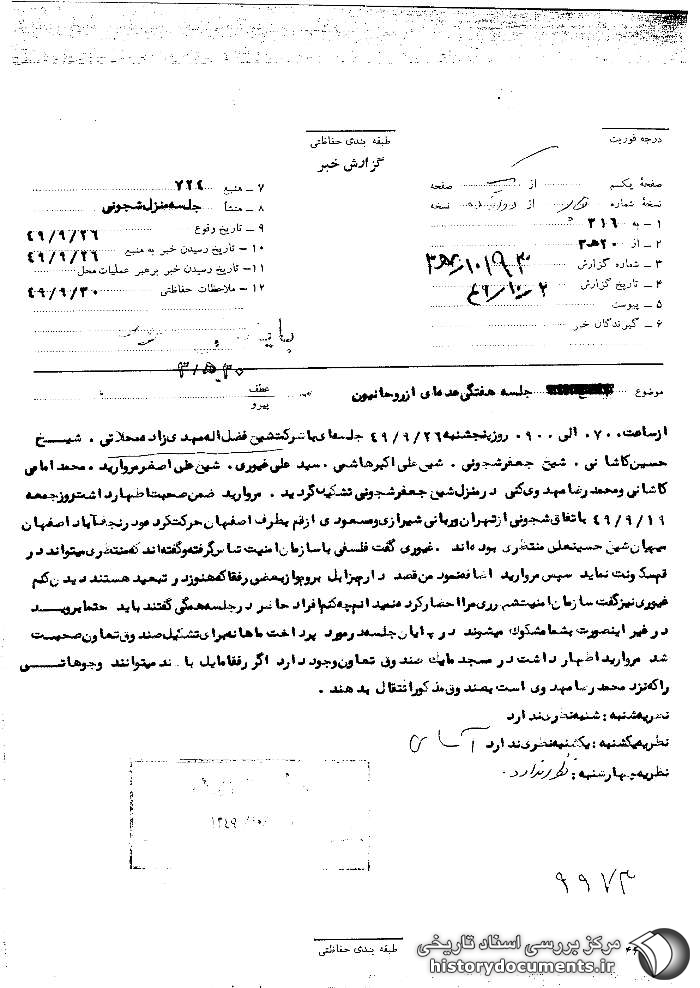 درجه فوریت
طبقه بندی حفاظتی
گزارش خبر
صفحهٔ یکم از صفحه
نسخهٔ شماره از نسخه
۱ ـ به ۳۱۶
۲ ـ از ۲۰ھ۳
۳ ـ شماره گزارش
۴ ـ تاریخ گزارش
۵ ـ پیوست
۶ ـ گیرندگان خبر
۷ ـ منبع ۷۲۴
۸ ـ منشأ جلسه منزل شجونی
۹ ـ تاریخ وقوع ۴۹/۹/۲۶
۱۰ ـ تاریخ رسیدن خبر به منبع ۴۹/۹/۲۶
۱۱ ـ تاریخ رسیدن خبر برهبر عملیات محل
۱۲ ـ ملاحظات حفاظتی ۴۹/۹/۳۰
موضوع جلسه هفتگی عده‌ای از روحانیون
عطف
پیرو
از ساعت ۰۷۰۰ الی ۰۹۰۰ روز پنجشنبه ۴۹/۹/۲۶ جلسه‌ای با شرکت شیخ فضل اله مهدی زاده محلاتی ـ شیخ
حسین کاشانی ـ شیخ جعفر شجونی ـ شیخ علی اکبر هاشمی ـ سید علی غیوری ـ شیخ علی اصغر مروارید ـ محمد امامی
کاشانی و محمد رضا مهدوی کنی در منزل شیخ جعفر شجونی تشکیل گردید ـ مروارید ضمن صحبت اظهار داشت روز جمعه
۴۹/۹/۱۹ باتفاق شجونی از تهران و ربانی شیرازی و مسعودی از قم بطرف اصفهان حرکت کرده و در نجف آباد اصفهان
میهمان شیخ حسینعلی منتظری بوده‌اند ـ غیوری گفت فلسفی با سازمان امنیت تماس گرفته و گفته‌اند که منتظری میتواند در
قم سکونت نماید سپس مروارید اضافه نمود من قصد دارم بروم از بعضی رفقا که هنوز در تبعید هستند دیدن کنم
غیوری نیز گفت سازمان امنیت شهرری مرا احضار کرده نمیدانم چه کنم افراد حاضر در جلسه همگی گفتند باید حتما بروید
در غیر اینصورت بشما مشکوک میشوند در پایان جلسه در مورد پرداخت ماهانه برای تشکیل صندوق تعاون صحبت
شد مروارید اظهار داشت در مسجد ما یک صندوق تعاون وجود دارد اگر رفقا مایل باشند میتوانند وجوهاتی
را که نزد محمد رضا مهدوی است بصندوق مذکور انتقال بدهند ـ
نظریه شنبه : شنبه نظری ندارد
نظریه یکشنبه : یکشنبه نظری ندارد
نظریه چهارشنبه : نظری ندارد ـ
۹۹۷۳
طبقه بندی حفاظتی
مرکز بررسی اسناد تاریخی
historydocuments.ir